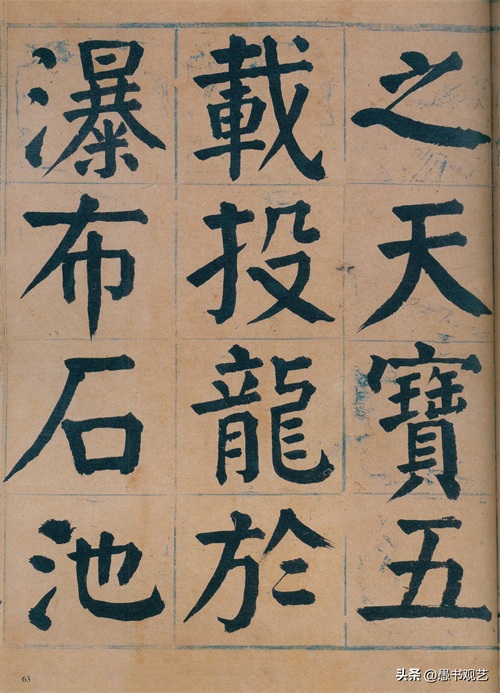 之天寶五
載投龍於
瀑布石池
63
头条 @愚书观艺